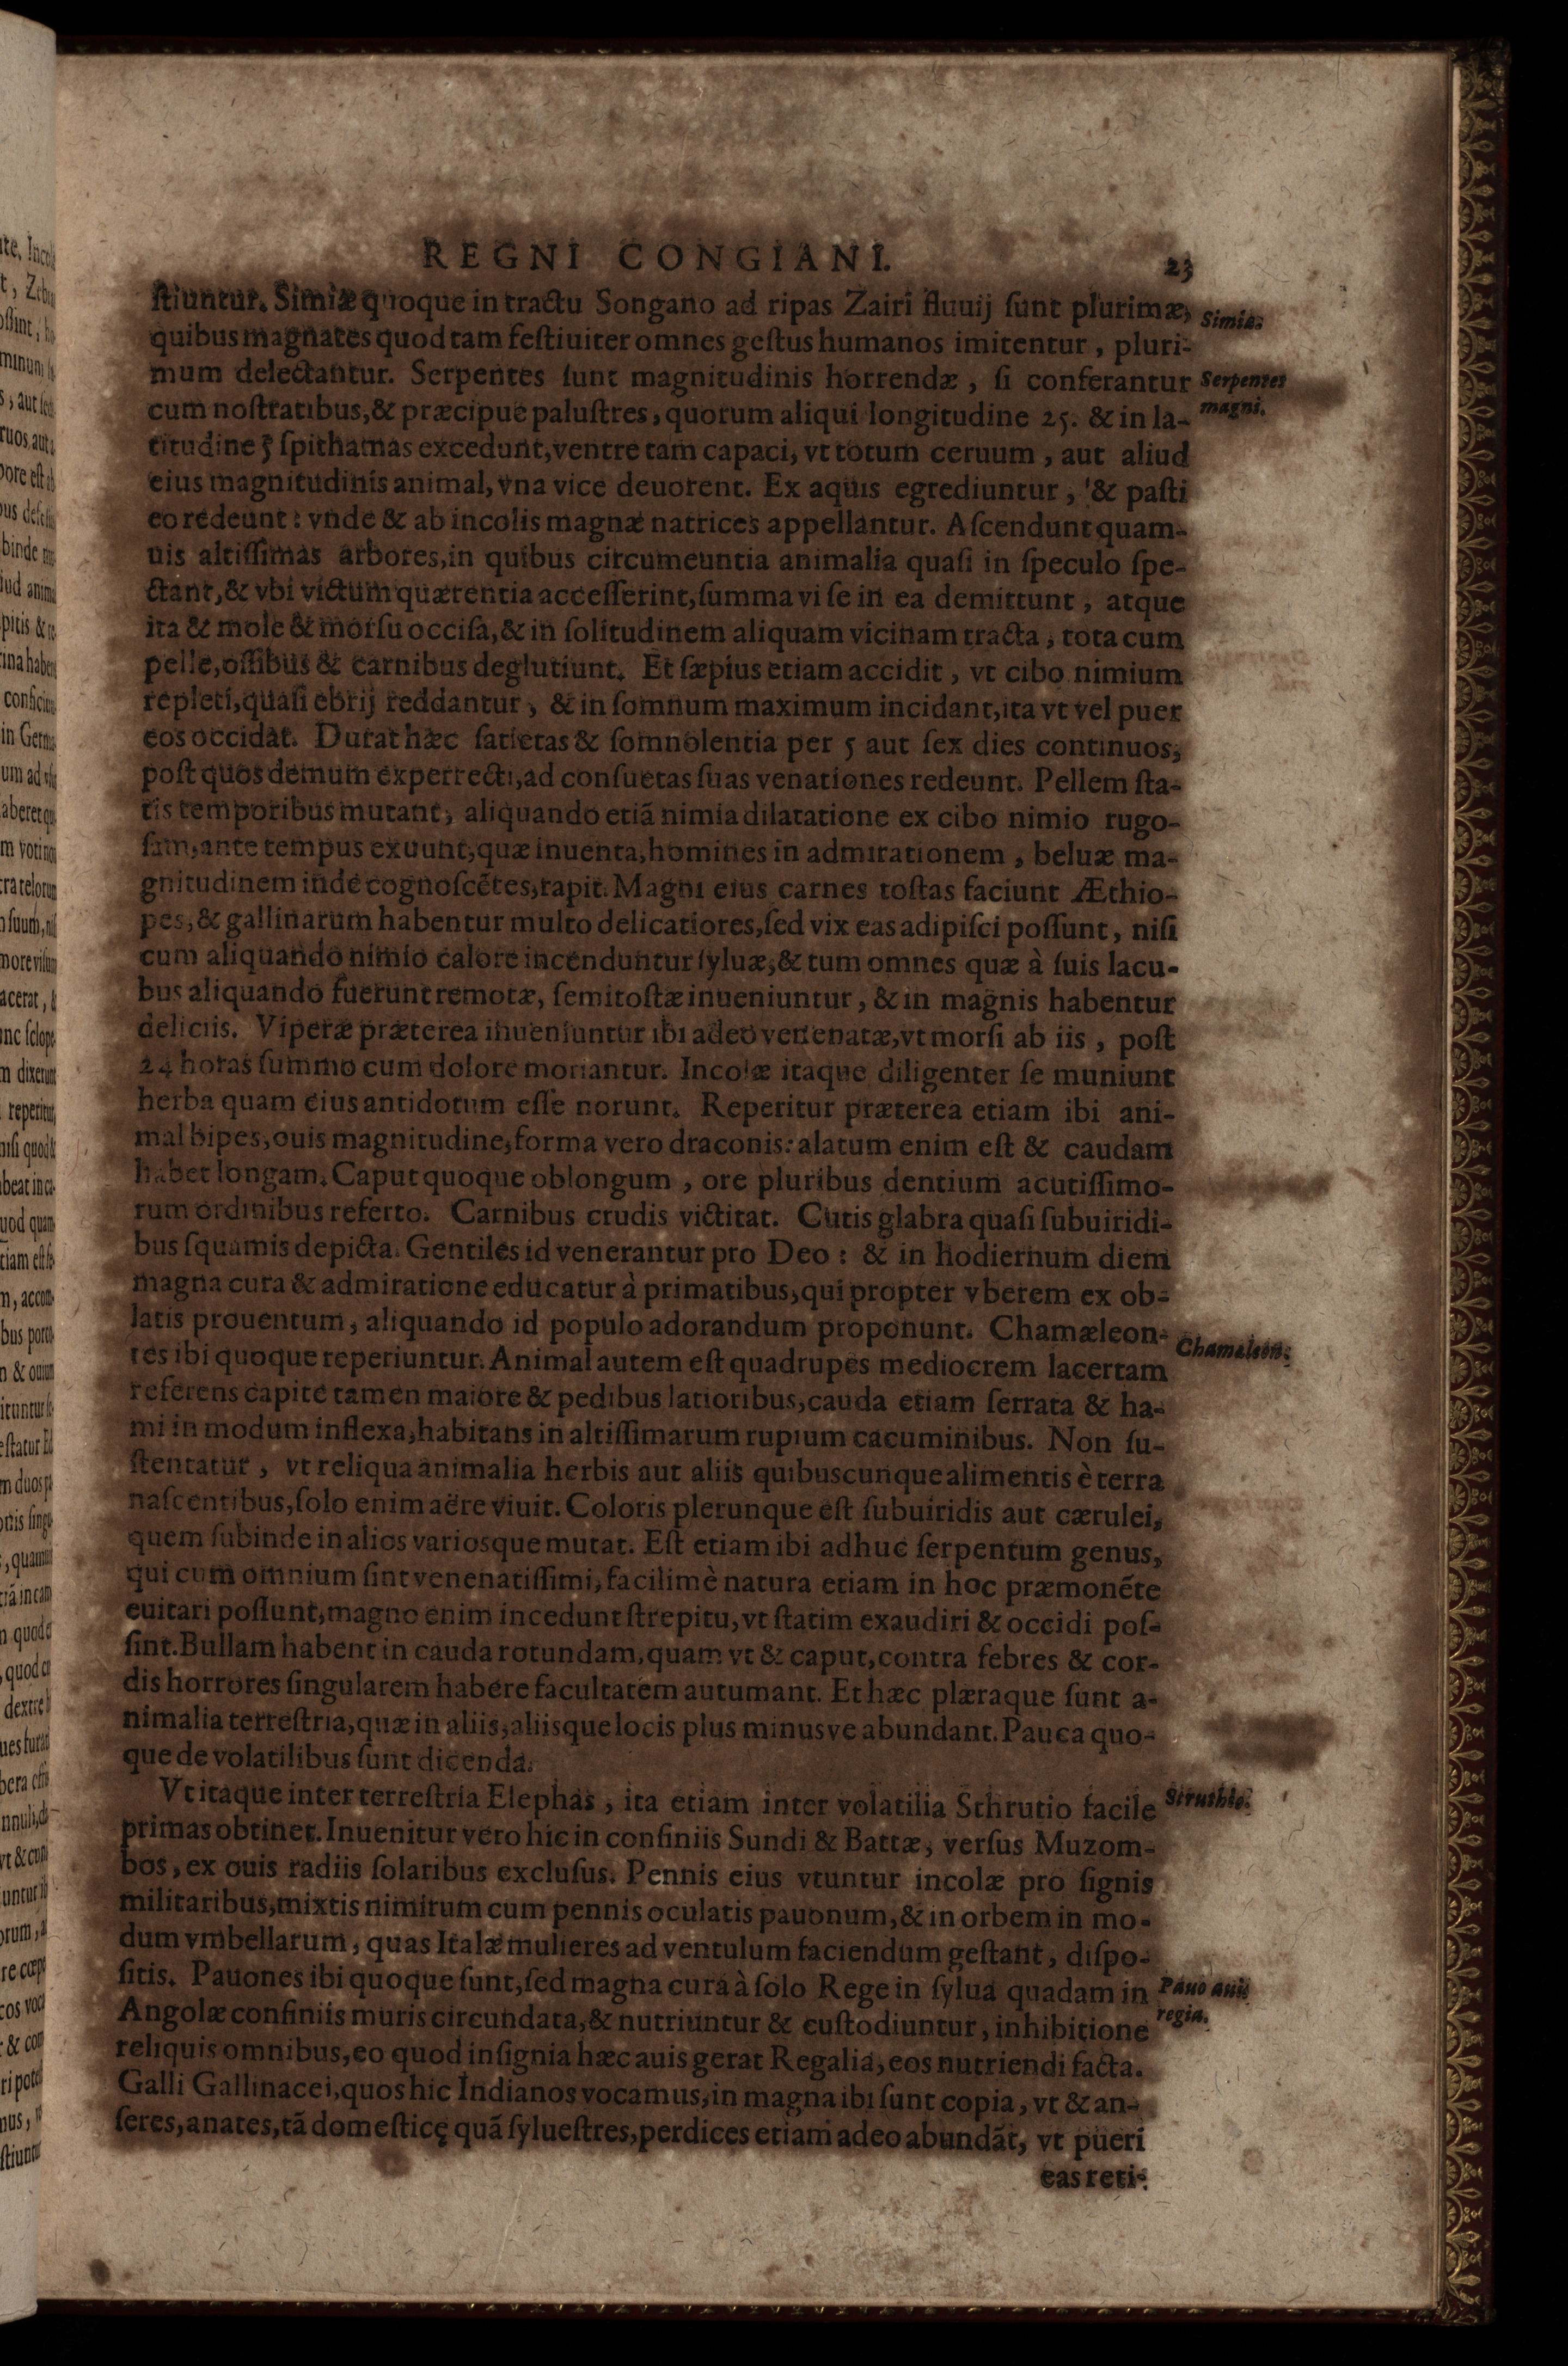 REGNI CONGIANI. 23
ſtiuntur. Simiæ quoque in tractu Songano ad ripas Zairi fluuij ſunt plurimæ,
Simiæ.
quibus magnates quod tam feſtiuiter omnes geſtus humanos imitentur, pluri-
mum delectantur. Serpentes ſunt magnitudinis horrendæ, ſi conferantur
Serpentes
cum noſtratibus, & præcipue paluſtres, quorum aliqui longitudine 25. & in la-
magni.
titudine 5 ſpithamas excedunt, ventre tam capaci, vt totum ceruum, aut aliud
eius magnitudinis animal, vna vice deuorent. Ex aquis egrediuntur, & paſti
eo redeunt: vnde & ab incolis magnæ natrices appellantur. Aſcendunt quam-
uis altiſſimas arbores, in quibus circumeuntia animalia quaſi in ſpeculo ſpe-
ctant, & vbi victum quærentia acceſſerint, ſumma vi ſe in ea demittunt, atque
ita & mole & morſu occiſa, & in ſolitudinem aliquam vicinam tracta, tota cum
pelle, oſſibus & carnibus deglutiunt. Et ſæpius etiam accidit, vt cibo nimium
repleti, quaſi ebrij reddantur, & in ſomnum maximum incidant, ita vt vel puer
eos occidat. Durat hæc ſatietas & ſomnolentia per 5 aut ſex dies continuos,
poſt quos demum experrecti, ad conſuetas ſuas venationes redeunt. Pellem ſta-
tis temporibus mutant, aliquando etiã nimia dilatatione ex cibo nimio rugo-
ſam, ante tempus exuunt, quæ inuenta, homines in admirationem, beluæ ma-
gnitudinem inde cognoſcẽtes, rapit. Magni eius carnes toſtas faciunt Æthio-
pes, & gallinarum habentur multo delicatiores, ſed vix eas adipiſci poſſunt, niſi
cum aliquando nimio calore incenduntur ſyluæ, & tum omnes quæ à ſuis lacu-
bus aliquando fuerunt remotæ, ſemitoſtæ inueniuntur, & in magnis habentur
deliciis. Viperæ præterea inueniuntur ibi adeo venenatæ, vt morſi ab iis, poſt
24 horas ſummo cum dolore moriantur. Incolæ itaque diligenter ſe muniunt
herba quam eius antidotum eſſe norunt. Reperitur præterea etiam ibi ani-
mal bipes, ouis magnitudine, forma vero draconis: alatum enim eſt & caudam
habet longam. Caput quoque oblongum, ore pluribus dentium acutiſſimo-
rum ordinibus referto. Carnibus crudis victitat. Cutis glabra quaſi ſubuiridi-
bus ſquamis depicta. Gentiles id venerantur pro Deo: & in hodiernum diem
magna cura & admiratione educatur à primatibus, qui propter vberem ex ob-
latis prouentum, aliquando id populo adorandum proponunt. Chamæleon-
Chamæleon.
tes ibi quoque reperiuntur. Animal autem eſt quadrupes mediocrem lacertam
referens capite tamen maiore & pedibus latioribus, cauda etiam ſerrata & ha-
mi in modum inflexa, habitans in altiſſimarum rupium cacuminibus. Non ſu-
ſtentatur, vt reliqua animalia herbis aut aliis quibuscunque alimentis è terra
naſcentibus, ſolo enim aëre viuit. Coloris plerunque eſt ſubuiridis aut cærulei,
quem ſubinde in alios variosque mutat. Eſt etiam ibi adhuc ſerpentum genus,
qui cum omnium ſint venenatiſſimi, facilimè natura etiam in hoc præmonẽte
euitari poſſunt, magno enim incedunt ſtrepitu, vt ſtatim exaudiri & occidi poſ-
ſint. Bullam habent in cauda rotundam, quam vt & caput, contra febres & cor-
dis horrores ſingularem habere facultatem autumant. Et hæc plæraque ſunt a-
nimalia terreſtria, quæ in aliis, aliisque locis plus minusve abundant. Pauca quo-
que de volatilibus ſunt dicenda.
Vt itaque inter terreſtria Elephas, ita etiam inter volatilia Schrutio facile
Struthio.
primas obtinet. Inuenitur vero hic in confiniis Sundi & Battæ, verſus Muzom-
bos, ex ouis radiis ſolaribus excluſus. Pennis eius vtuntur incolæ pro ſignis
militaribus, mixtis nimirum cum pennis oculatis pauonum, & in orbem in mo-
dum vmbellarum, quas Italæ mulieres ad ventulum faciendum geſtant, diſpo-
ſitis. Pauones ibi quoque ſunt, ſed magna cura à ſolo Rege in ſylua quadam in
Pauo auis
Angolæ confiniis muris circundata, & nutriuntur & cuſtodiuntur, inhibitione
regia.
reliquis omnibus, eo quod inſignia hæc auis gerat Regalia, eos nutriendi facta.
Galli Gallinacei, quos hic Indianos vocamus, in magna ibi ſunt copia, vt & an-
ſeres, anates, tã domeſticę quã ſylueſtres, perdices etiam adeo abundãt, vt pueri
eas reti-